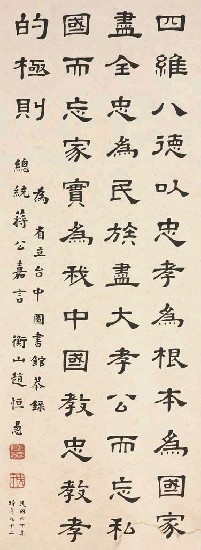 四維八德以忠孝為根本為國家
盡全忠為民族盡大孝公而忘私
國而忘家實為我中國教忠教孝
的極則
為省立台中圖書館恭錄
總統蔣公嘉言 衡山趙恒惕
民國六十年
時年九十二